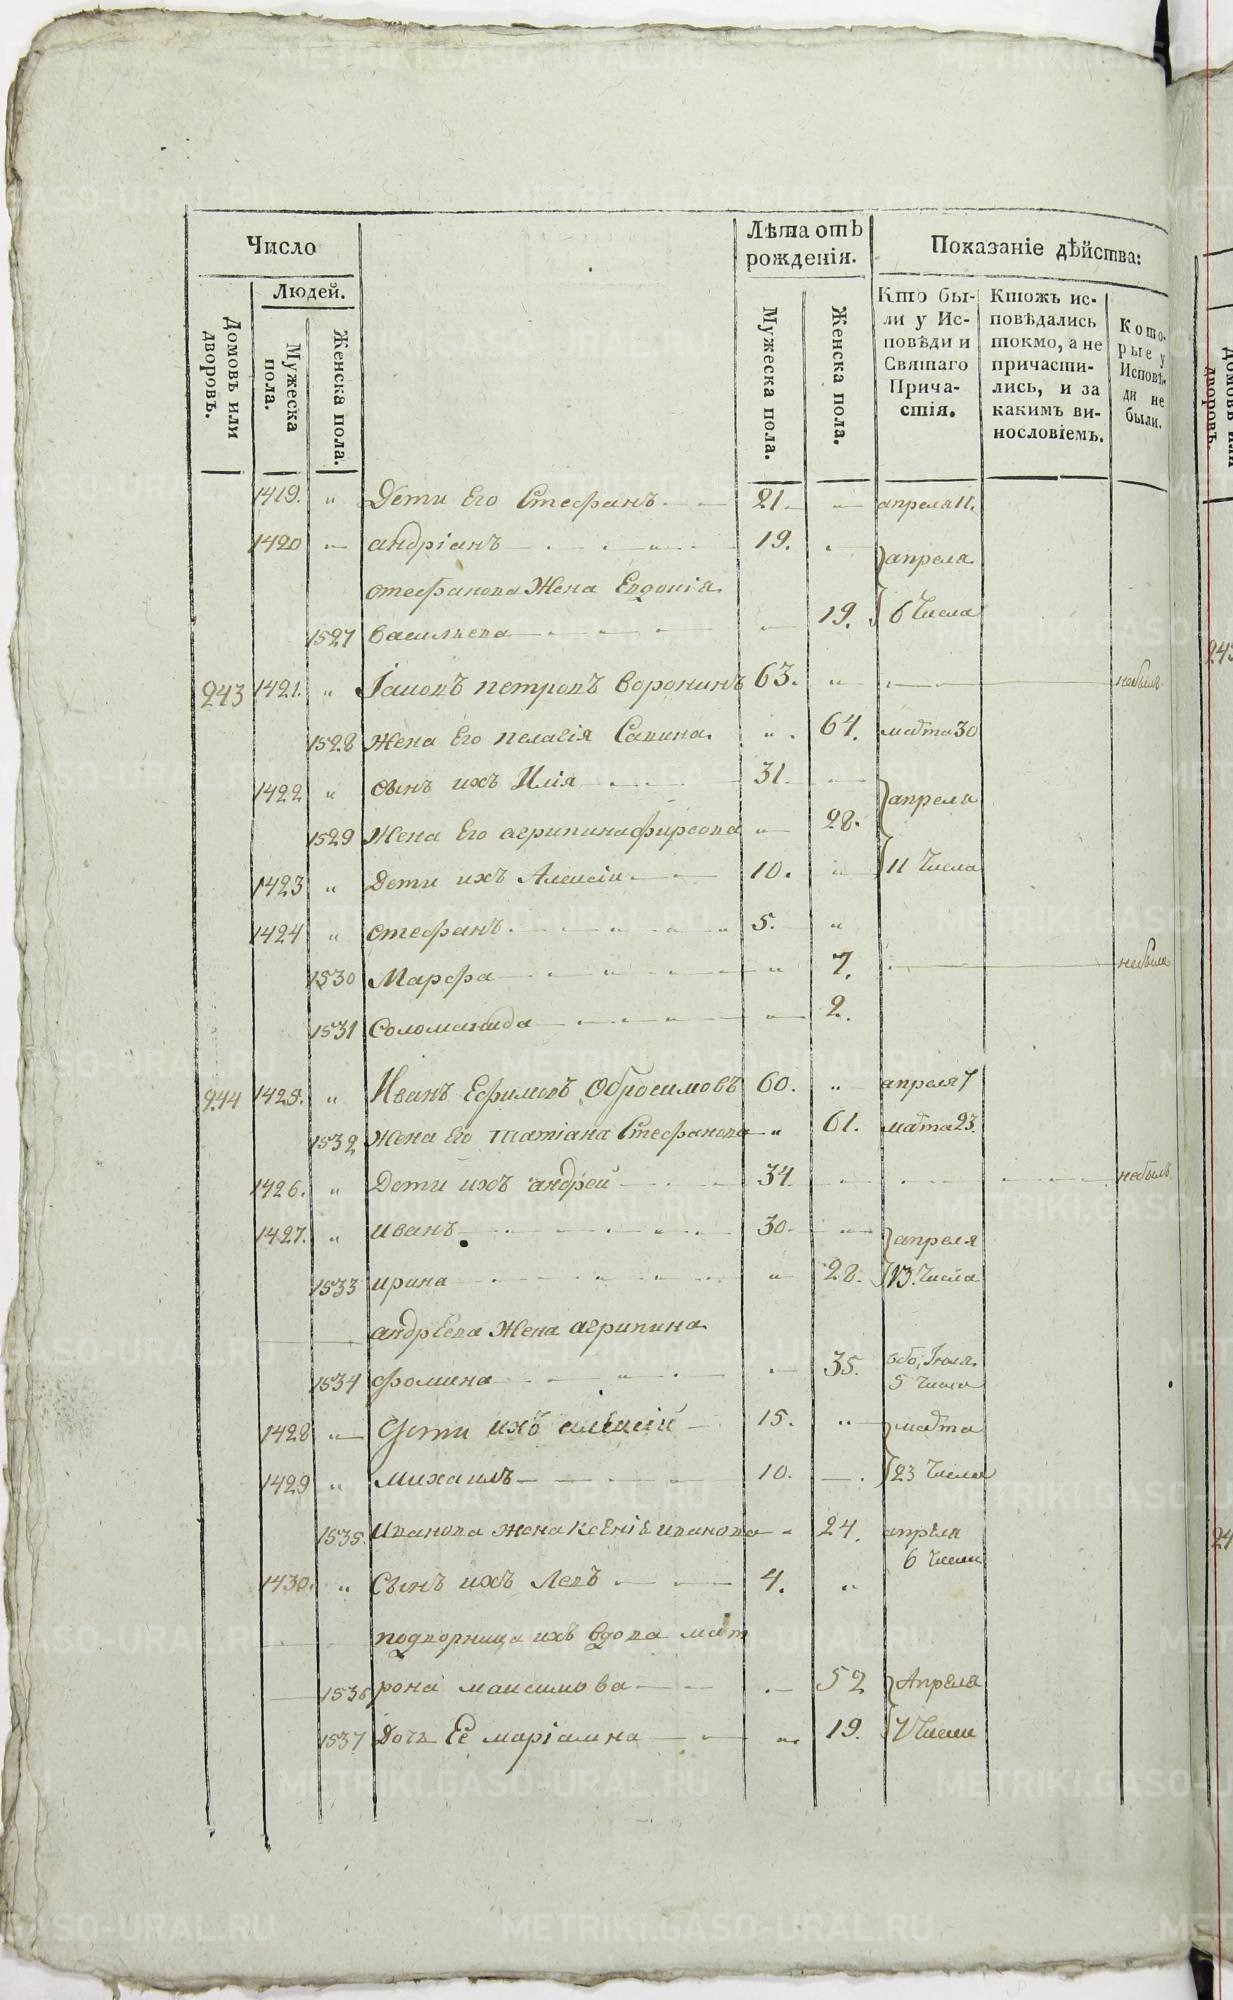 Число
Людей.
Домовъ или дворовъ.
Мужеска пола.
Женска пола.
Лѣта отъ рожденія.
Мужеска пола.
Женска пола.
Показаніе дѣйства:
Кто бы-
ли у Ис-
повѣди и
Святаго
Прича-
стія.
Ктожъ ис-
повѣдались
токмо, а не
причасти-
лись, и за
какимъ ви-
нословіемъ.
Кото-
рые у
Исповѣ-
ди не
были.
1419. " Дети Его Стефанъ 21. " апреля 11.
1420 " андріанъ 19. " апреля
стефанова Жена Евдокія
1527 васильева " 19. 6 Числа
243 1421. " Іаковъ петровъ воронинъ 63. " небылъ
1528 жена Его пелагія Савина " 64. марта 30
1422 " сынъ ихъ Илія 31 " апреля
1529 жена Его агрипина фирсова " 28.
1423 " Дети ихъ Алексіи 10. " 11 Числа
1424 " стефанъ 5. "
1530 Марфа " 7. небыла
1531 Соломанида " 2.
244 1425. " Иванъ Ефимовъ Обросимовъ 60. " апреля 7
1532 жена Его татіана Стефанова " 61. марта 23.
1426. " Дети ихъ андрей 34 небылъ
1427. " иванъ 30. " апреля
1533 ирина " 28. 13. Числа
андреева жена агрипина
1534 фомина 35. Іюля
5 числа
1428 " Дети ихъ алексій 15. " марта
1429 " михаилъ 10. 23 Числа
1535. иванова жена ксеніе иванова " 24. апреля
6 Числа
1430. " Сынъ ихъ Левъ 4. "
подворница ихъ вдова мат
1536 рона максимова 52 Апреля
1537 Дочь Ее маріамна " 19. 7 Числа
243
24